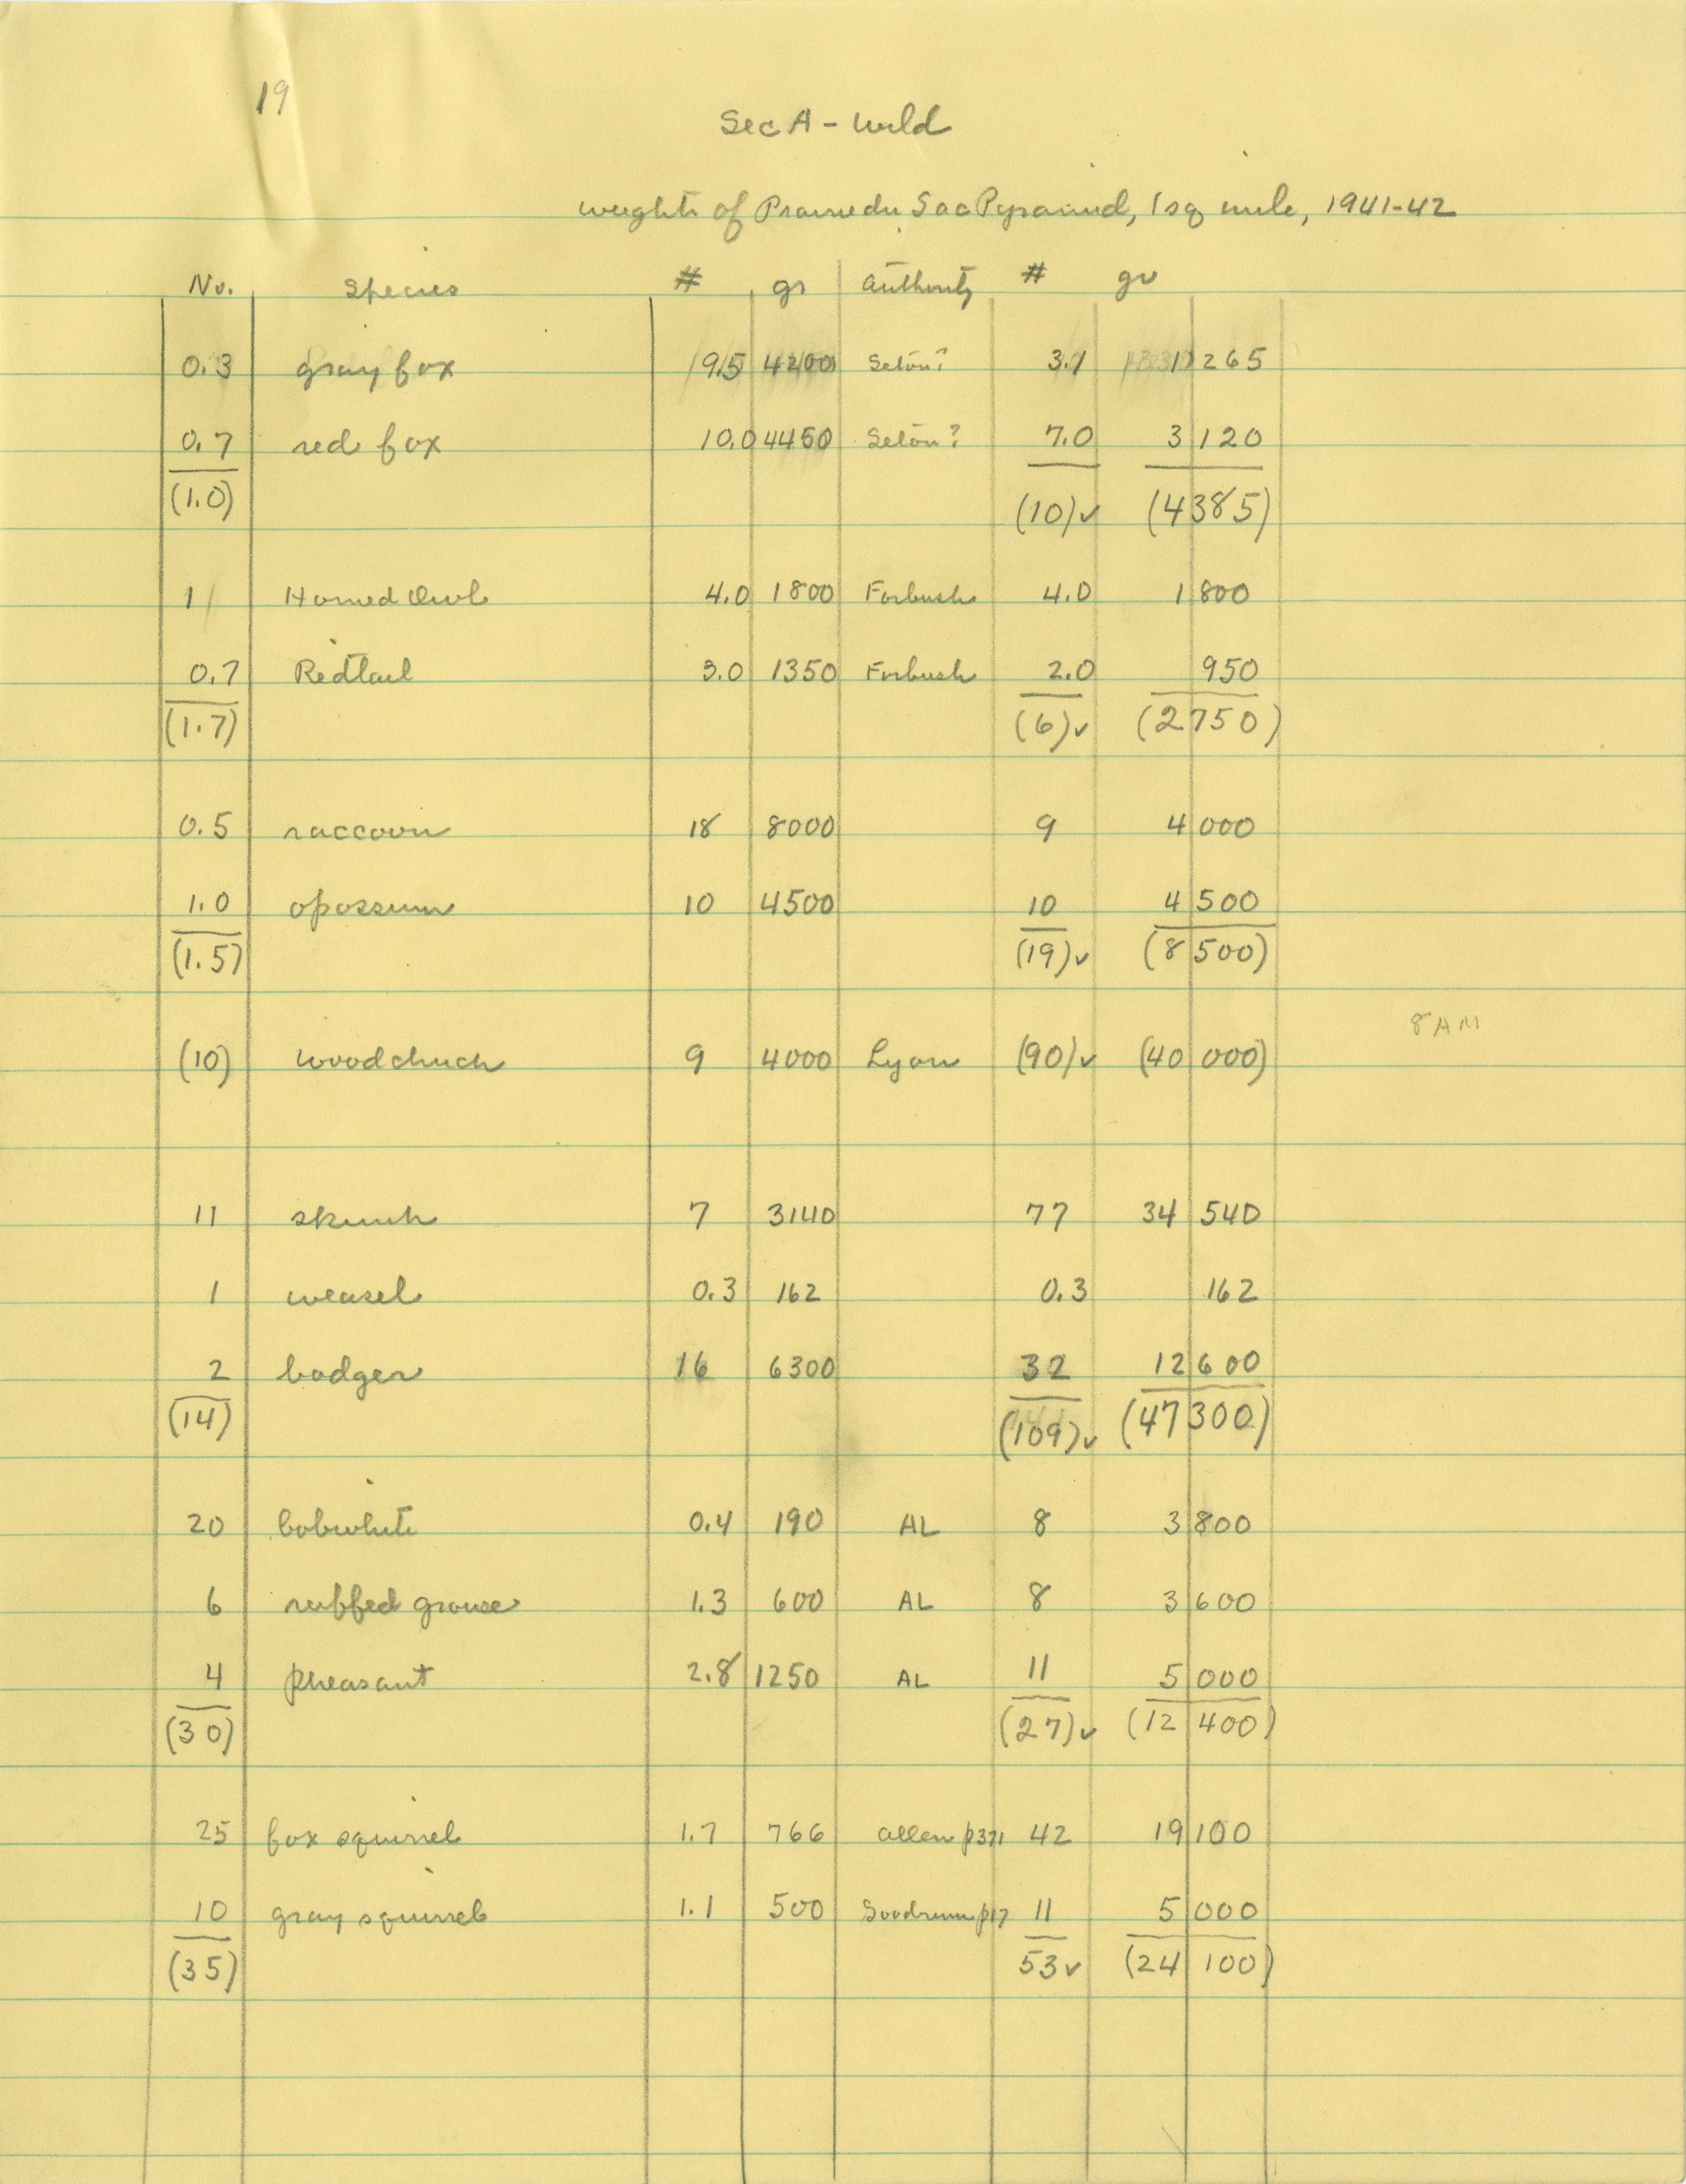 19
Sec A - Wild
Weights of Prairie du Sac Pyramid, 1 sq mile, 1941-42
No. Species # gr Authority # gr
0.3 gray fox 9.5 4200 Seton? 3.1 1 265
0.7 red fox 10.0 4450 Seton? 7.0 3 120
(1.0) (10)✓ (4385)
1 Horned Owl 4.0 1800 Forbush 4.0 1 800
0.7 Redtail 3.0 1350 Forbush 2.0 950
(1.7) (6)✓ (2750)
0.5 raccoon 18 8000 9 4 000
1.0 opossum 10 4500 10 4 500
(1.5) (19)✓ (8 500)
8 AM
(10) woodchuck 9 4000 Lyon (90)✓ (40 000)
11 skunk 7 3140 77 34 540
1 weasel 0.3 162 0.3 162
2 badger 16 6300 32 12 600
(14) (109)✓ (47 300)
20 bobwhite 0.4 190 AL 8 3 800
6 ruffed grouse 1.3 600 AL 8 3 600
4 pheasant 2.8 1250 AL 11 5 000
(30) (27)✓ (12 400)
25 fox squirrel 1.7 766 Allen p371 42 19 100
10 gray squirrel 1.1 500 Goodrum p17 11 5 000
(35) 53✓ (24 100)